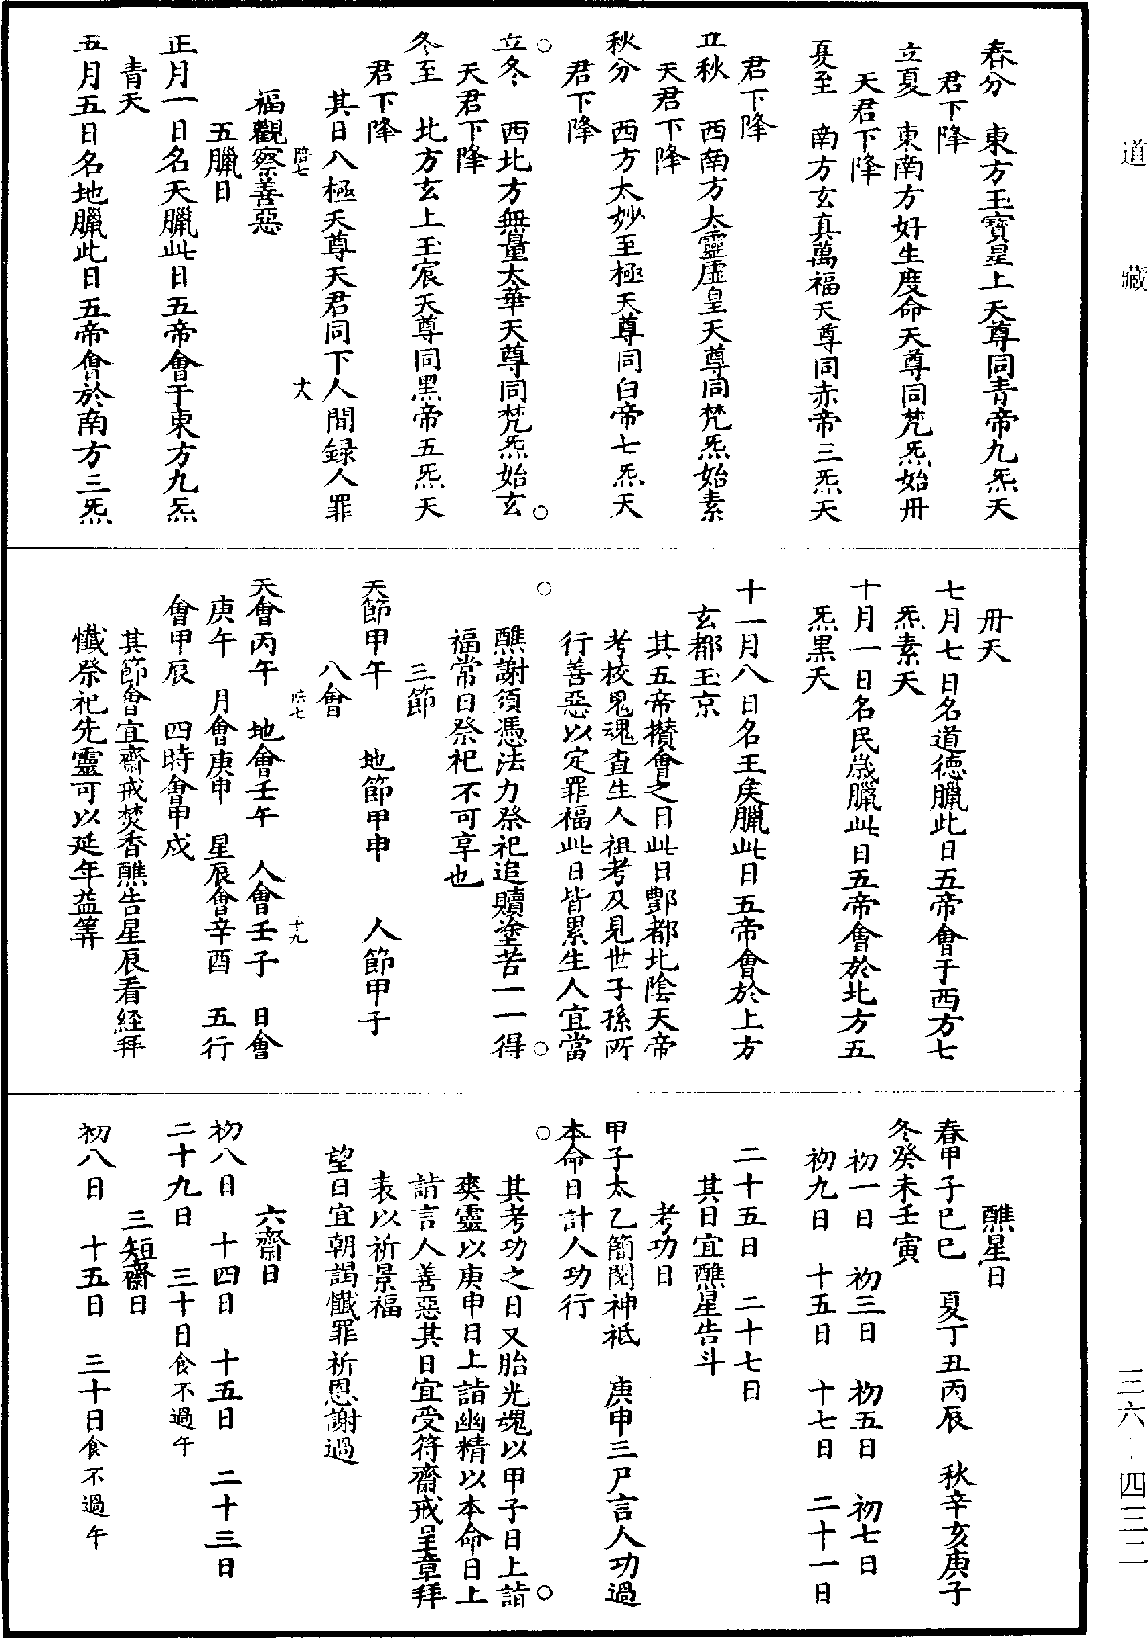 道藏
三六·四三二
春分　東方玉寶皇上天尊同青帝九炁天
君下降
立夏　東南方好生度命天尊同梵炁始丹
天君下降
夏至　南方玄真萬福天尊同赤帝三炁天
君下降
立秋　西南方太靈虛皇天尊同梵炁始素
天君下降
秋分　西方太妙至極天尊同白帝七炁天
君下降
立冬　西北方無量太華天尊同梵炁始玄
天君下降
冬至　北方玄上玉宸天尊同黑帝五炁天
君下降
其日八極天尊天君同下人間録人罪
福觀察善惡
五臘日
正月一日名天臘此日五帝會于東方九炁
青天
五月五日名地臘此日五帝會於南方三炁
丹天
七月七日名道德臘此日五帝會于西方七
炁素天
十月一日名民歲臘此日五帝會於北方五
炁黑天
十一月八日名王侯臘此日五帝會於上方
玄都玉京
其五帝攢會之日此日酆都北陰天帝
考校鬼魂查生人祖考及見世子孫所
行善惡以定罪福此日皆累生人宜當
醮謝須憑法力祭祀追贖塗苦一一得
福常日祭祀不可享也
三節
天節甲午　地節甲申　人節甲子
八會
天會丙午　地會壬午　人會壬子　日會
庚午　月會庚申　星辰會辛酉　五行
會甲辰　四時會甲戌
其節會宜齋戒焚香醮告星辰看經拜
懺祭祀先靈可以延年益筭
醮星日
春甲子己巳　夏丁丑丙辰　秋辛亥庚子
冬癸未壬寅
初一日　初三日　初五日　初七日
初九日　十五日　十七日　二十一日
二十五日　二十七日
其日宜醮星告斗
考功日
甲子太乙簡閱神祇　庚申三尸言人功過
本命日計人功行
其考功之日又胎光魂以甲子日上詣
爽靈以庚申日上詣幽精以本命日上
詣言人善惡其日宜受符齋戒呈章拜
表以祈景福
望日宜朝謁懺罪祈恩謝過
六齋日
初八日　十四日　十五日　二十三日
二十九日　三十日食不過午
三短齋日
初八日　十五日　三十日食不過午